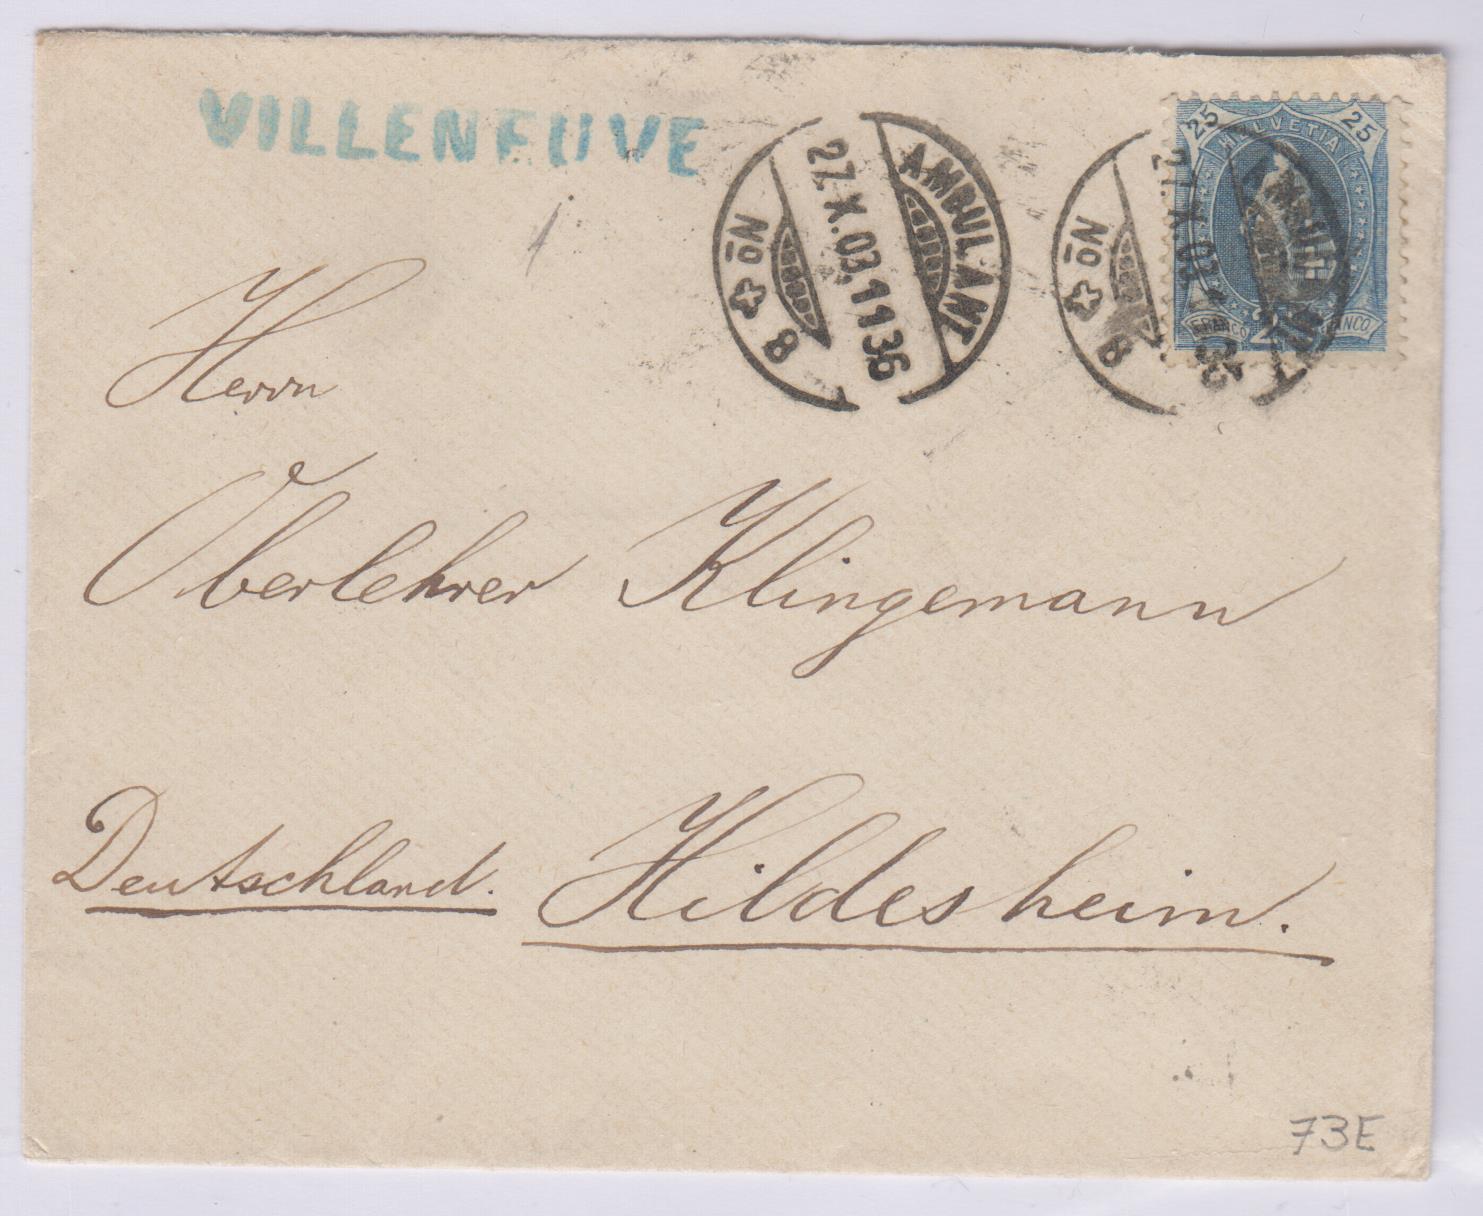 VILLENEUVE
AMBULANT
27.X.03.11 36
No 8
AMBULANT
27.X.03
No 8
25 25
HELVETIA
FRANCO FRANCO
Herrn
Oberlehrer Klingemann
Deutschland. Hildesheim.
73E